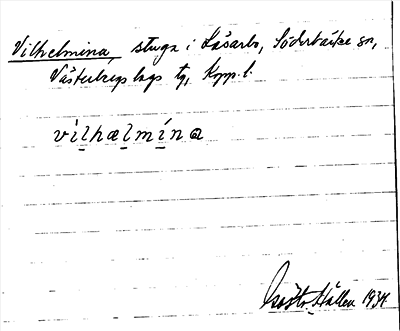 Vilhelmina, stuga i Låsarbo, Söderbärke sn,
Västerbergslags tg, Kopp.l.
vilhælmína
Hällen 1934